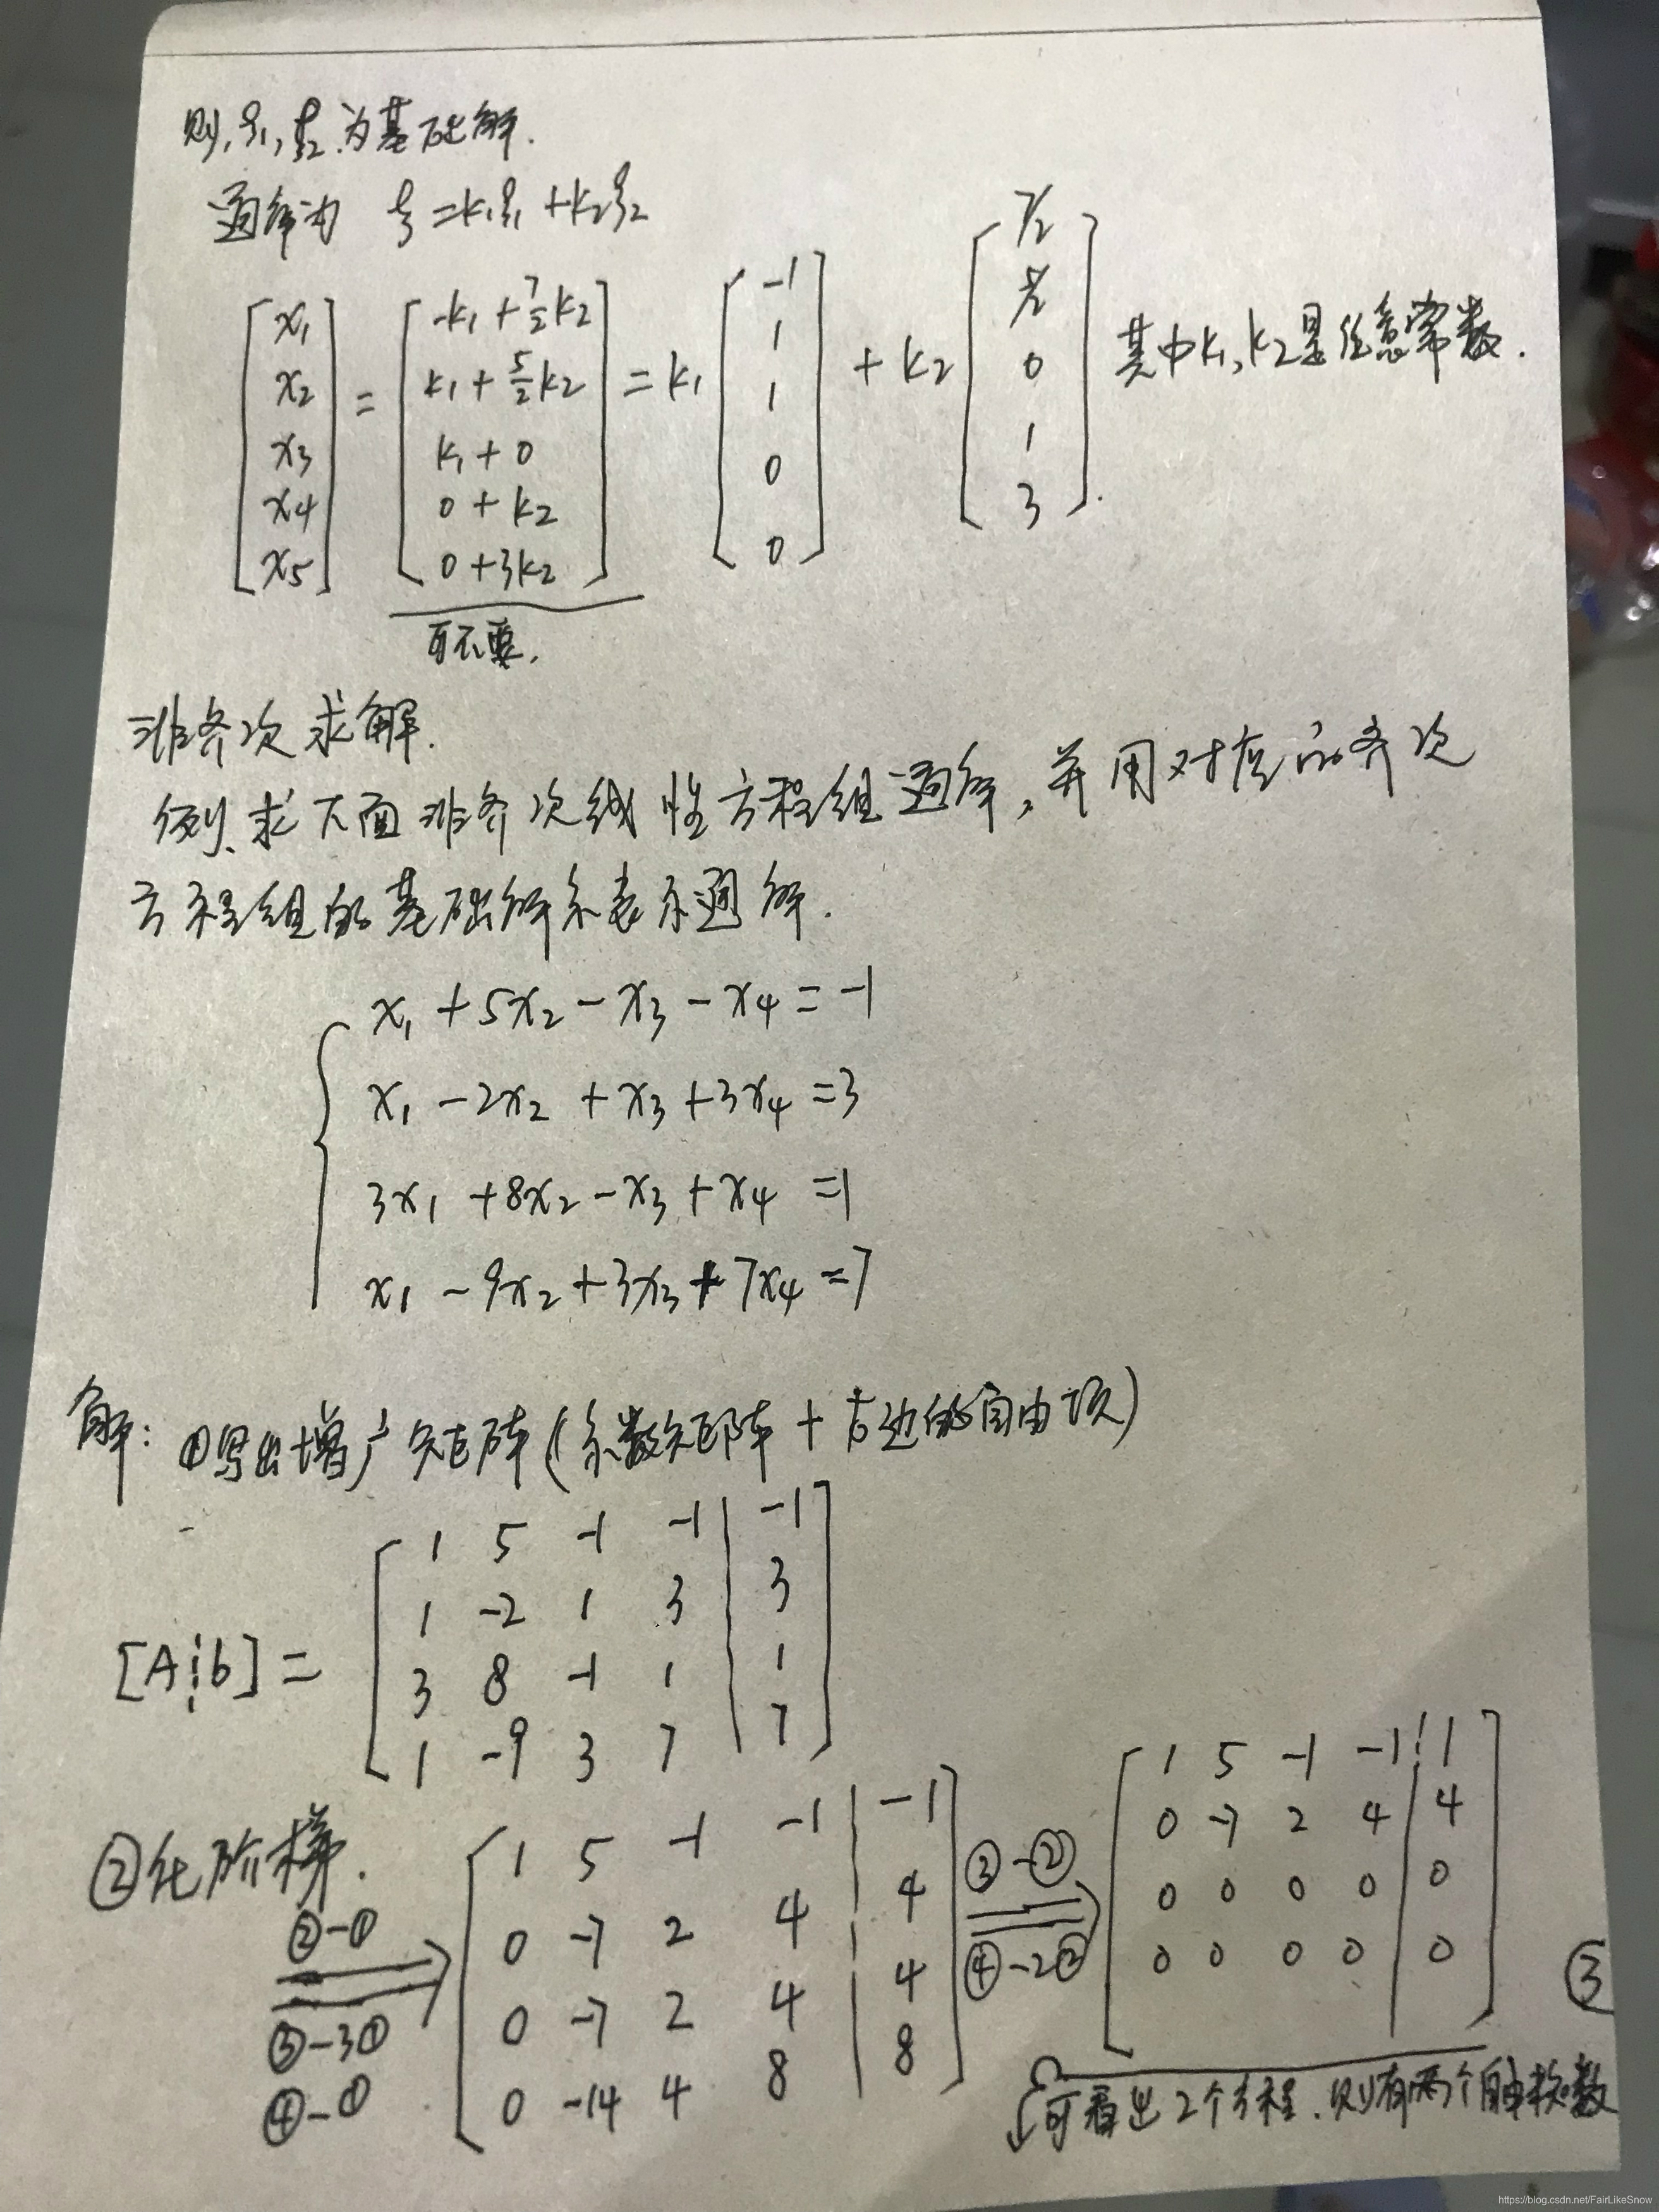 则,ξ₁,ξ₂为基础解.
通解为 ξ=k₁ξ₁+k₂ξ₂
[x₁ x₂ x₃ x₄ x₅] = [-k₁+7/2k₂ k₁+5/2k₂ k₁+0 0+k₂ 0+3k₂] = k₁[-1 1 1 0 0] + k₂[7/2 5/2 0 1 3]. 其中k₁,k₂是任意常数.
可不要.
非齐次求解.
例、求下面非齐次线性方程组通解,并用对应的齐次
方程组的基础解系表示通解.
x₁+5x₂-x₃-x₄=-1
x₁-2x₂+x₃+3x₄=3
3x₁+8x₂-x₃+x₄=1
x₁-9x₂+3x₃+7x₄=7
解:①写出增广矩阵(系数矩阵+右边的自由项)
1 5 -1 -1 | -1
1 -2 1 3 | 3
[A¦b]=
3 8 -1 1 | 1
1 -9 3 7 | 7
②化阶梯.
②-①
③-3①
④-①
1 5 -1 -1 | -1
0 -7 2 4 | 4
0 -7 2 4 | 4
0 -14 4 8 | 8
③-②
④-2②
1 5 -1 -1 | 1
0 -7 2 4 | 4
0 0 0 0 | 0
0 0 0 0 | 0
③
可看出2个方程.则有两个自由数
https://blog.csdn.net/FairLikeSnow